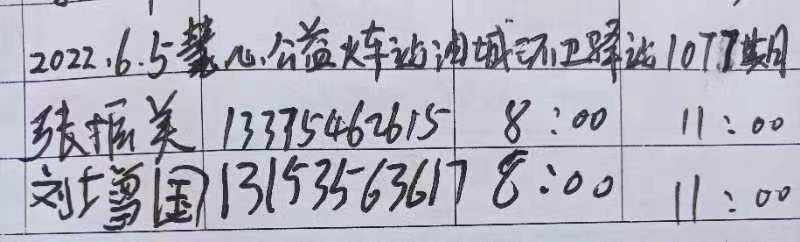 2022.6.5慧心公益火车站油城环卫驿站1077期
张振美 13375462615 8:00 11:00
刘雪国 13153563617 8:00 11:00